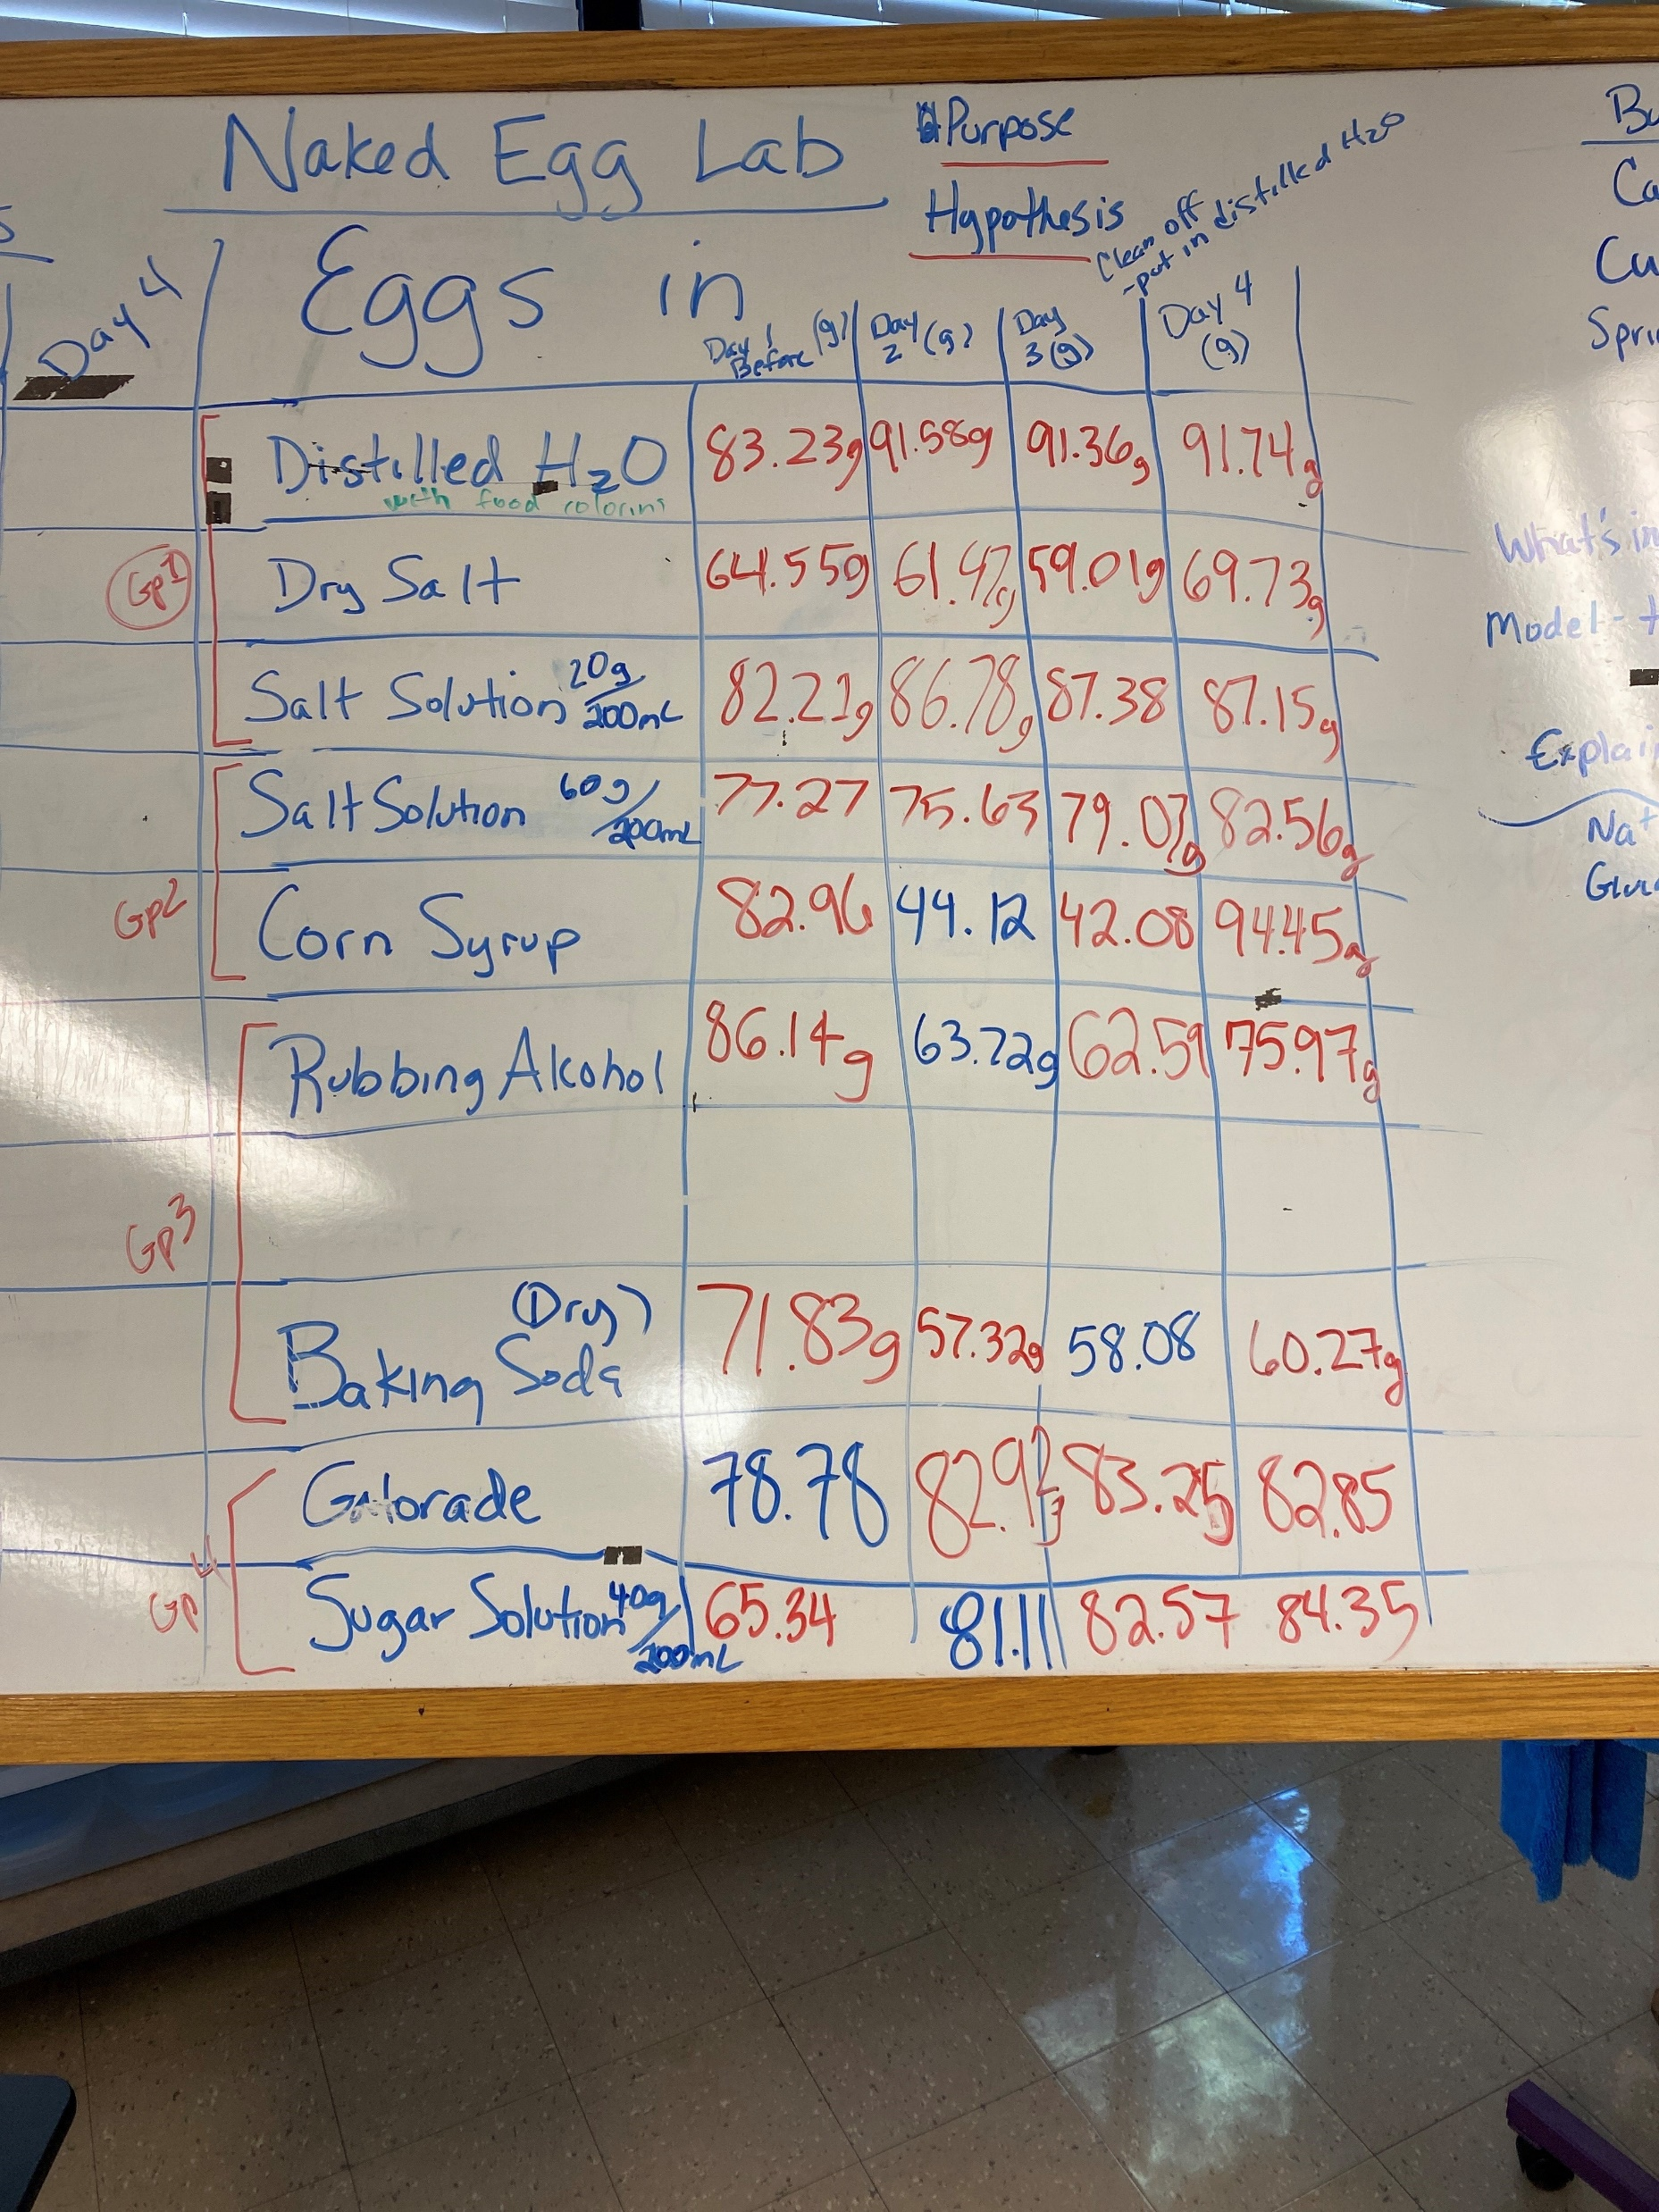 Naked Egg Lab
Purpose
Hypothesis
Clean off
-put in distilled H2O
Day 4
Eggs in
Day 1 Before (g)
Day 2 (g)
Day 3 (g)
Day 4 (g)
Distilled H₂O 83.23g 91.58g 91.36g 91.74g
with food coloring
Gp1
Dry Salt 64.55g 61.47g 59.01g 69.73g
Salt Solution 20g/200mL 82.21g 86.78g 87.38 87.15g
Salt Solution 60g/200mL 77.27 75.63 79.07g 82.56g
Gp2
Corn Syrup 82.96 44.12 42.08 94.45g
Rubbing Alcohol 86.14g 63.72g 62.59 75.97g
Gp3
(Dry)
Baking Soda 71.83g 57.32g 58.08 60.27g
Gatorade 78.78 83.25 82.85
Gp4
Sugar Solution 40g/200mL 65.34 81.11 82.57 84.35
What's in
Model-
Na+